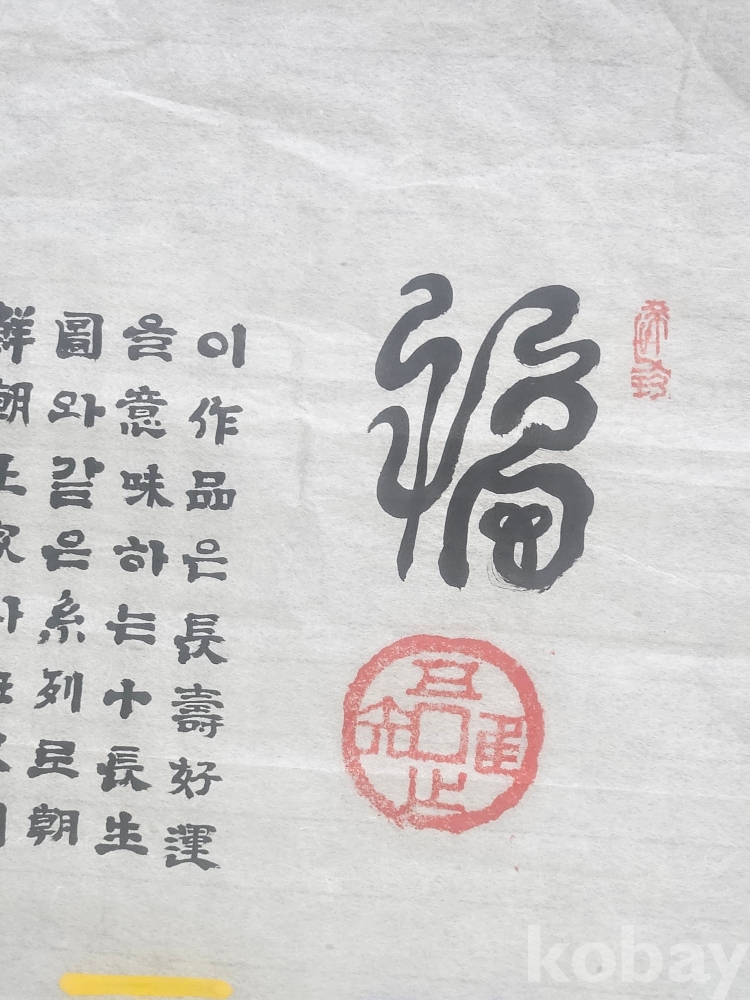 福
吾唯知足
이作品은長壽好運
을意味하는十長生
圖와같은系列로朝
鮮朝王
kobay